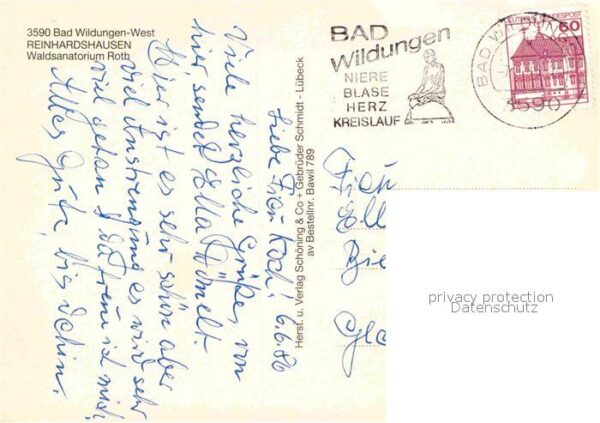 3590 Bad Wildungen-West
REINHARDSHAUSEN
Waldsanatorium Roth
Liebe Frau Koch! 6.6.86
Viele herzliche Grüße, von
hier, sendet Ella
Hier ist es sehr schön aber
viel Anstrengung es wird sehr
viel getan, da freu ich mich
Alles Gute, bis dahin.
Herst. u. Verlag Schöning & Co + Gebrüder Schmidt - Lübeck
av Bestellnr. Bawil 789
BAD
Wildungen
NIERE
BLASE
HERZ
KREISLAUF
BAD WILDUNGEN
3590
60
Frau
Ell
Bie
Gla
privacy protection
Datenschutz